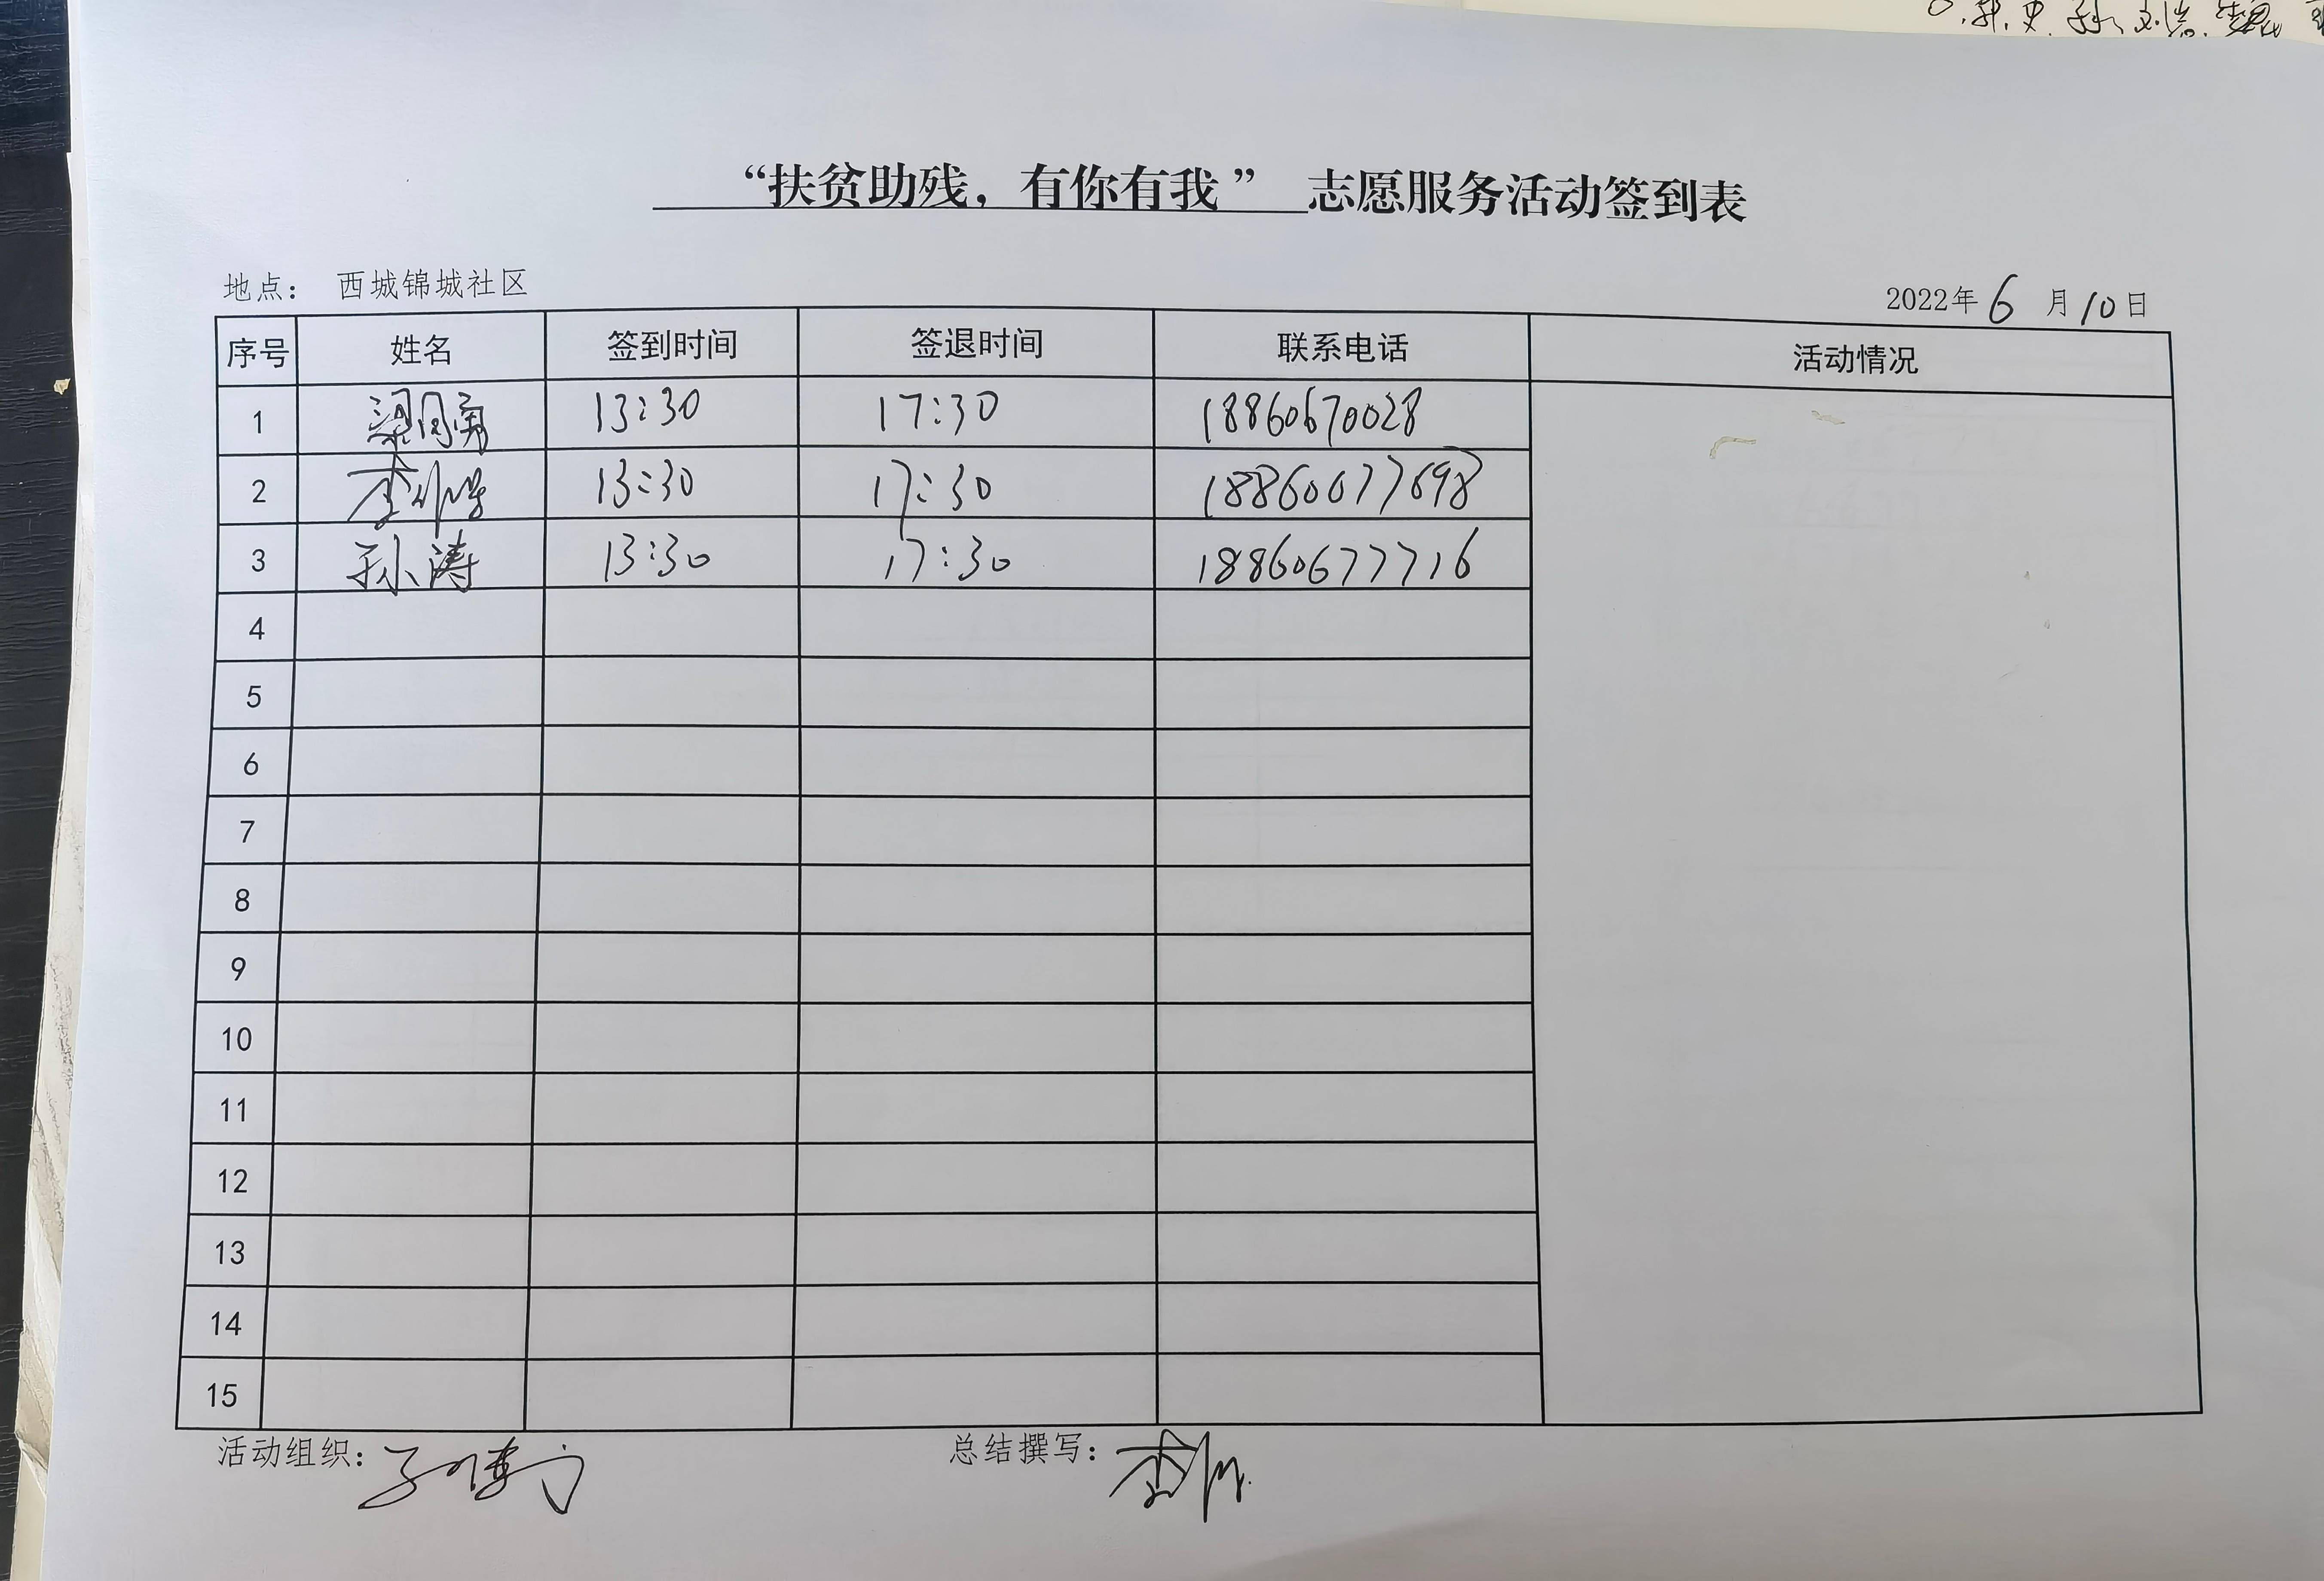 “扶贫助残，有你有我” 志愿服务活动签到表
地点： 西城锦城社区
2022年 6 月 10 日
序号 姓名 签到时间 签退时间 联系电话 活动情况
1 梁同勇 13:30 17:30 18860670028
2 李 13:30 17:30 18860677698
3 孙涛 13:30 17:30 18860677716
4
5
6
7
8
9
10
11
12
13
14
15
活动组织：
总结撰写：